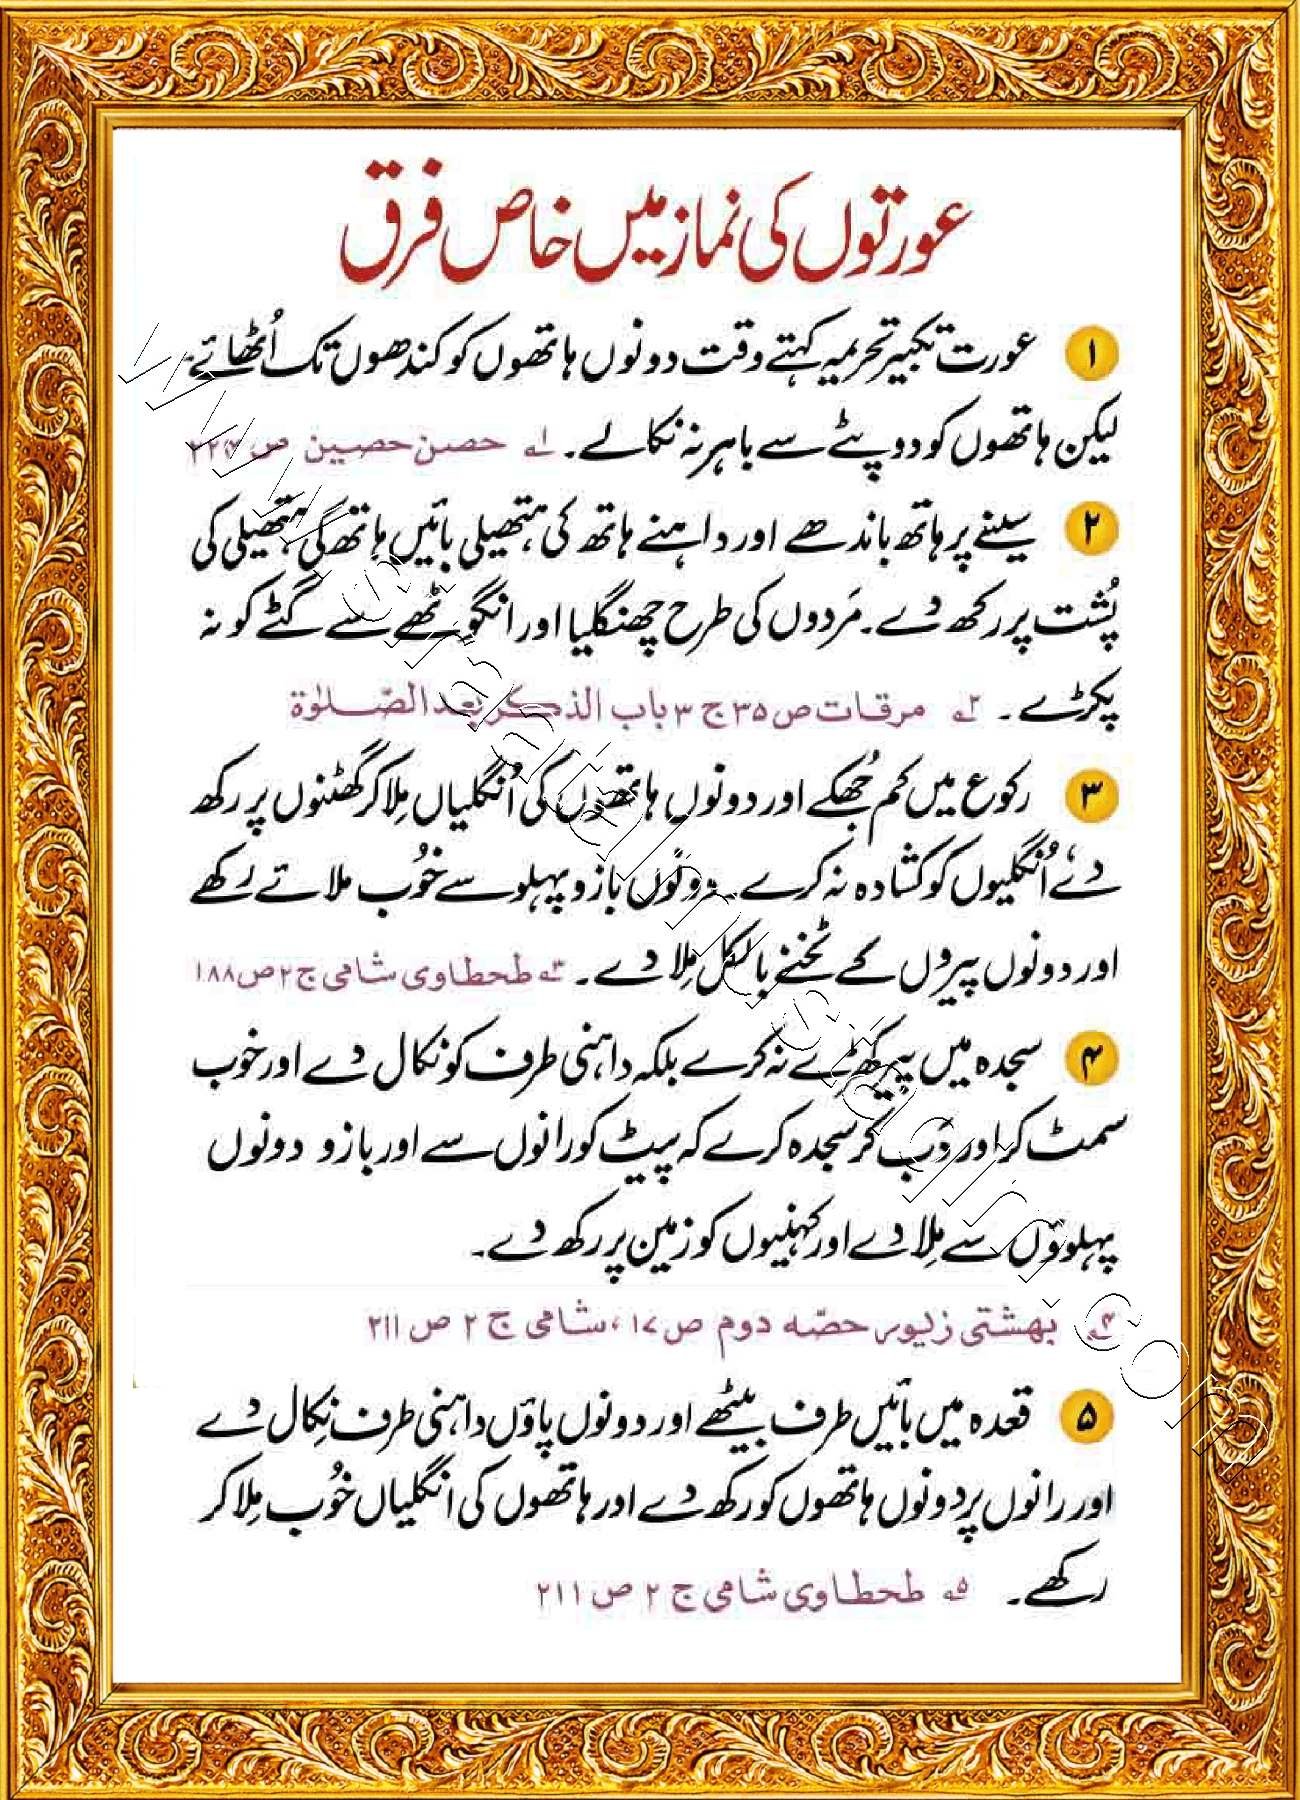 عورتوں کی نماز میں خاص فرق
۱ عورت تکبیر تحریمہ کہتے وقت دونوں ہاتھوں کو کندھوں تک اُٹھائے
لیکن ہاتھوں کو دوپٹے سے باہر نہ نکالے۔ ۱ے حصن حصین ص
۲ سینے پر ہاتھ باندھے اور داہنے ہاتھ کی ہتھیلی بائیں ہاتھ کی ہتھیلی کی
پُشت پر رکھ دے۔ مَردوں کی طرح چھنگلیا اور انگوٹھے سے گٹے کو نہ
پکڑے۔ ۲ے مرقات ص ۳۵ ج ۳ باب الذکر بعد الصّلوٰۃ
۳ رکوع میں کم جُھکے اور دونوں ہاتھوں کی اُنگلیاں مِلا کر گھٹنوں پر رکھ
دے اُنگلیوں کو کشادہ نہ کرے۔ دونوں بازو پہلو سے خوُب ملائے رکھے
اور دونوں پیروں کے ٹخنے بالکل مِلا دے۔ ۳ے طحطاوی شامی ج ۲ ص ۱۸۸
۴ سجدہ میں پیر کھڑے نہ کرے بلکہ داہنی طرف کو نکال دے اور خوب
سمٹ کر اور دَب کر سجدہ کرے کہ پیٹ کو رانوں سے اور بازو دونوں
پہلوؤں سے مِلا دے اور کہنیوں کو زمین پر رکھ دے۔
۴ے بہشتی زیور حصّہ دوم ص ۱۷، شامی ج ۲ ص ۲۱۱
۵ قعدہ میں بائیں طرف بیٹھے اور دونوں پاؤں داہنی طرف نِکال دے
اور رانوں پر دونوں ہاتھوں کو رکھ دے اور ہاتھوں کی انگلیاں خوُب مِلا کر
رکھے۔ ۵ے طحطاوی شامی ج ۲ ص ۲۱۱